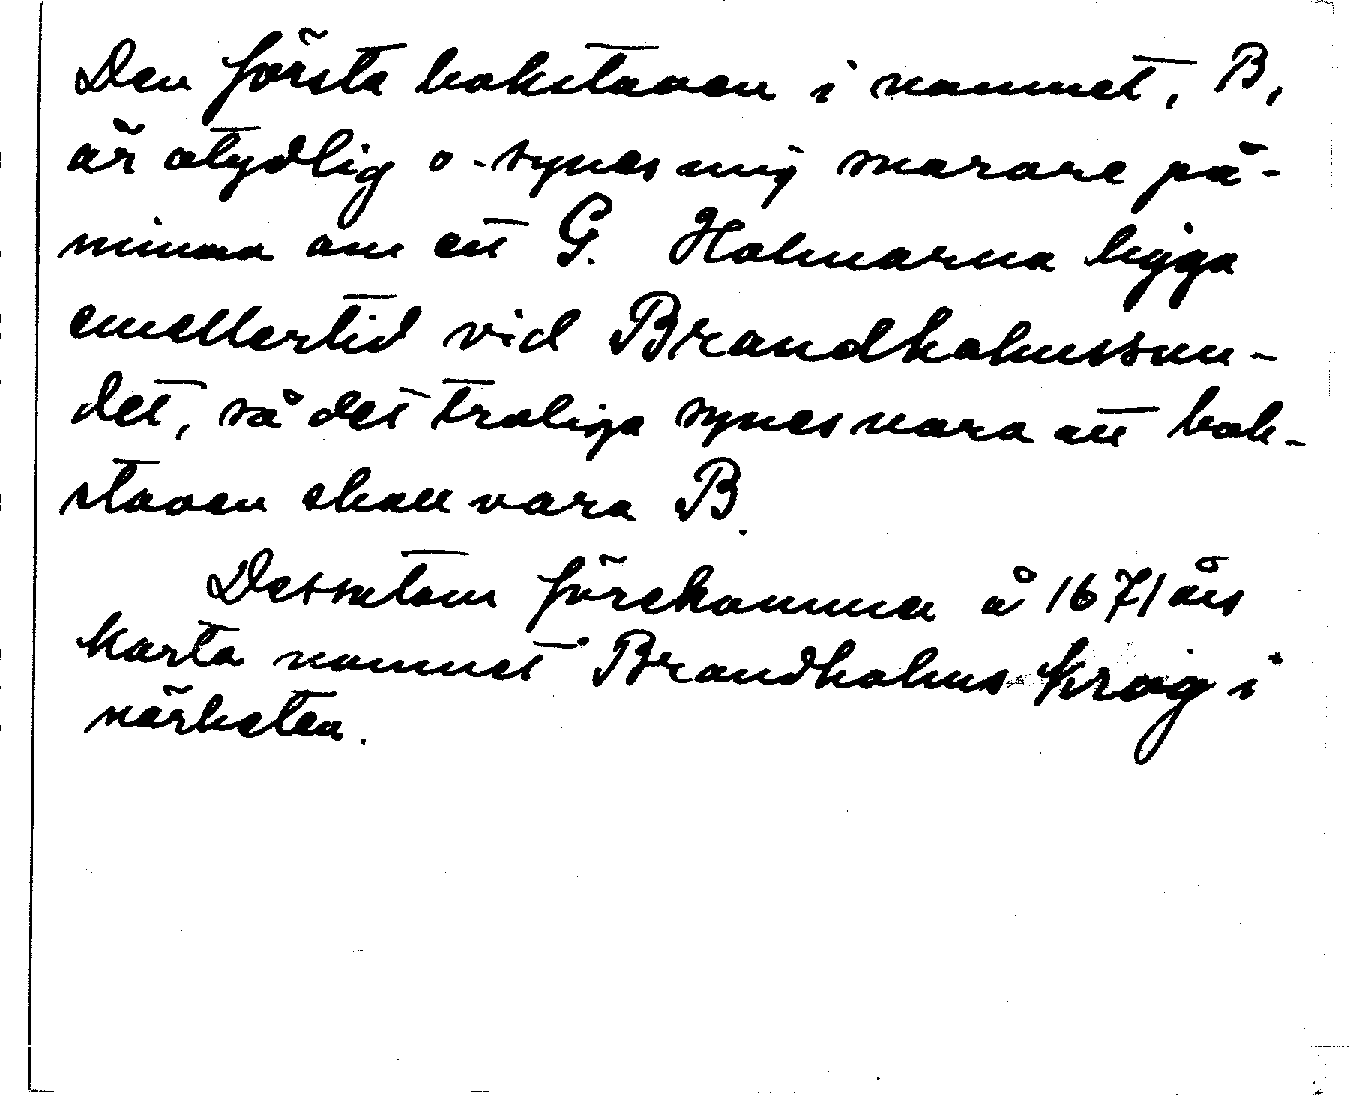 Den första bokstaven i namnet, B,
är otydlig o. synes mig snarare på-
minna om ett G. Holmarna ligga
emellertid vid Brandholmssun-
det, så det troliga synes vara att bok-
staven skall vara B.
Dessutom förekommer å 1671 års
karta namnet Brandholms krog i
närheten.